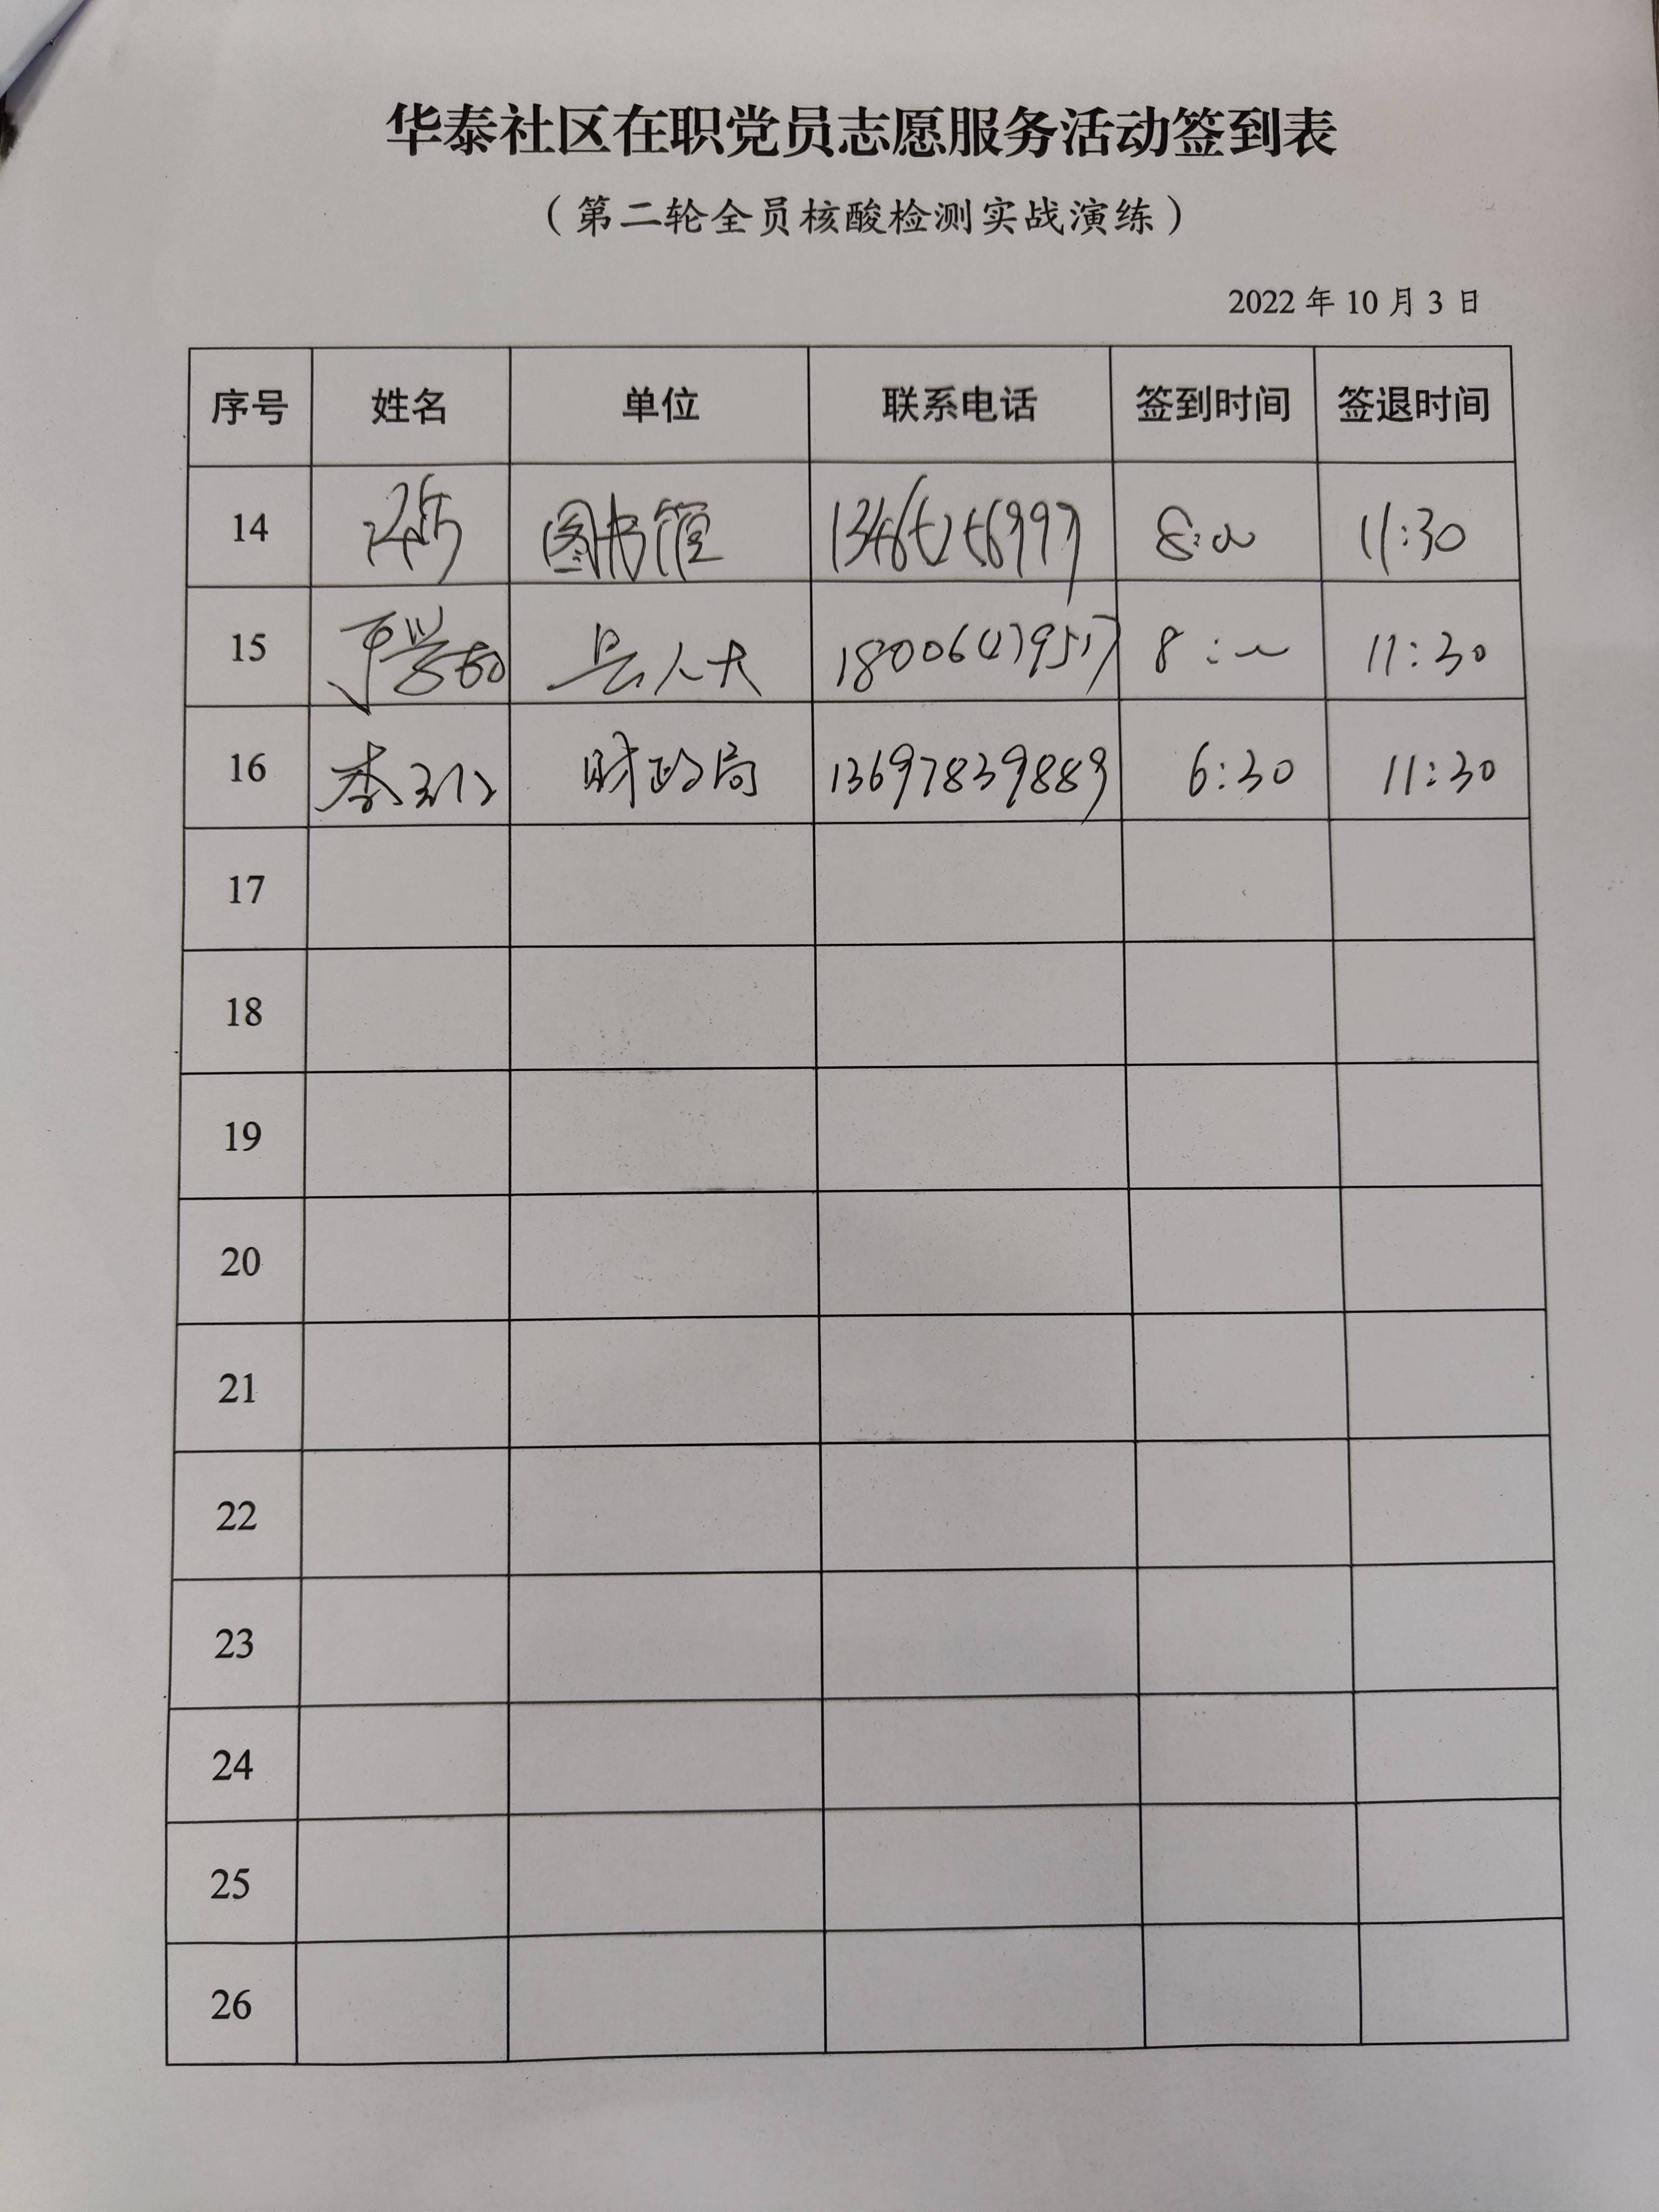 华泰社区在职党员志愿服务活动签到表
（第二轮全员核酸检测实战演练）
2022 年 10 月 3 日
序号 姓名 单位 联系电话 签到时间 签退时间
14 图书馆 8:00 11:30
15 县人大 8:00 11:30
16 李 财政局 13697839889 6:30 11:30
17
18
19
20
21
22
23
24
25
26